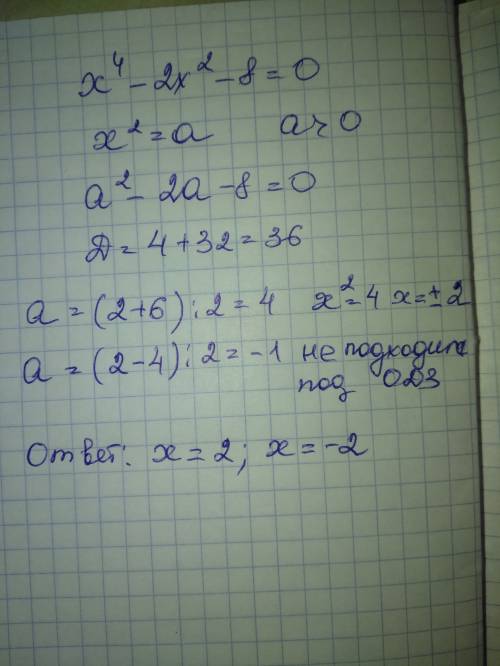 x⁴ - 2x² - 8 = 0
x² = a   a > 0
a² - 2a - 8 = 0
Д = 4 + 32 = 36
a = (2+6) : 2 = 4   x² = 4   x = ± 2
a = (2-4) : 2 = -1   не подходит
под ОДЗ
Ответ: x = 2; x = -2